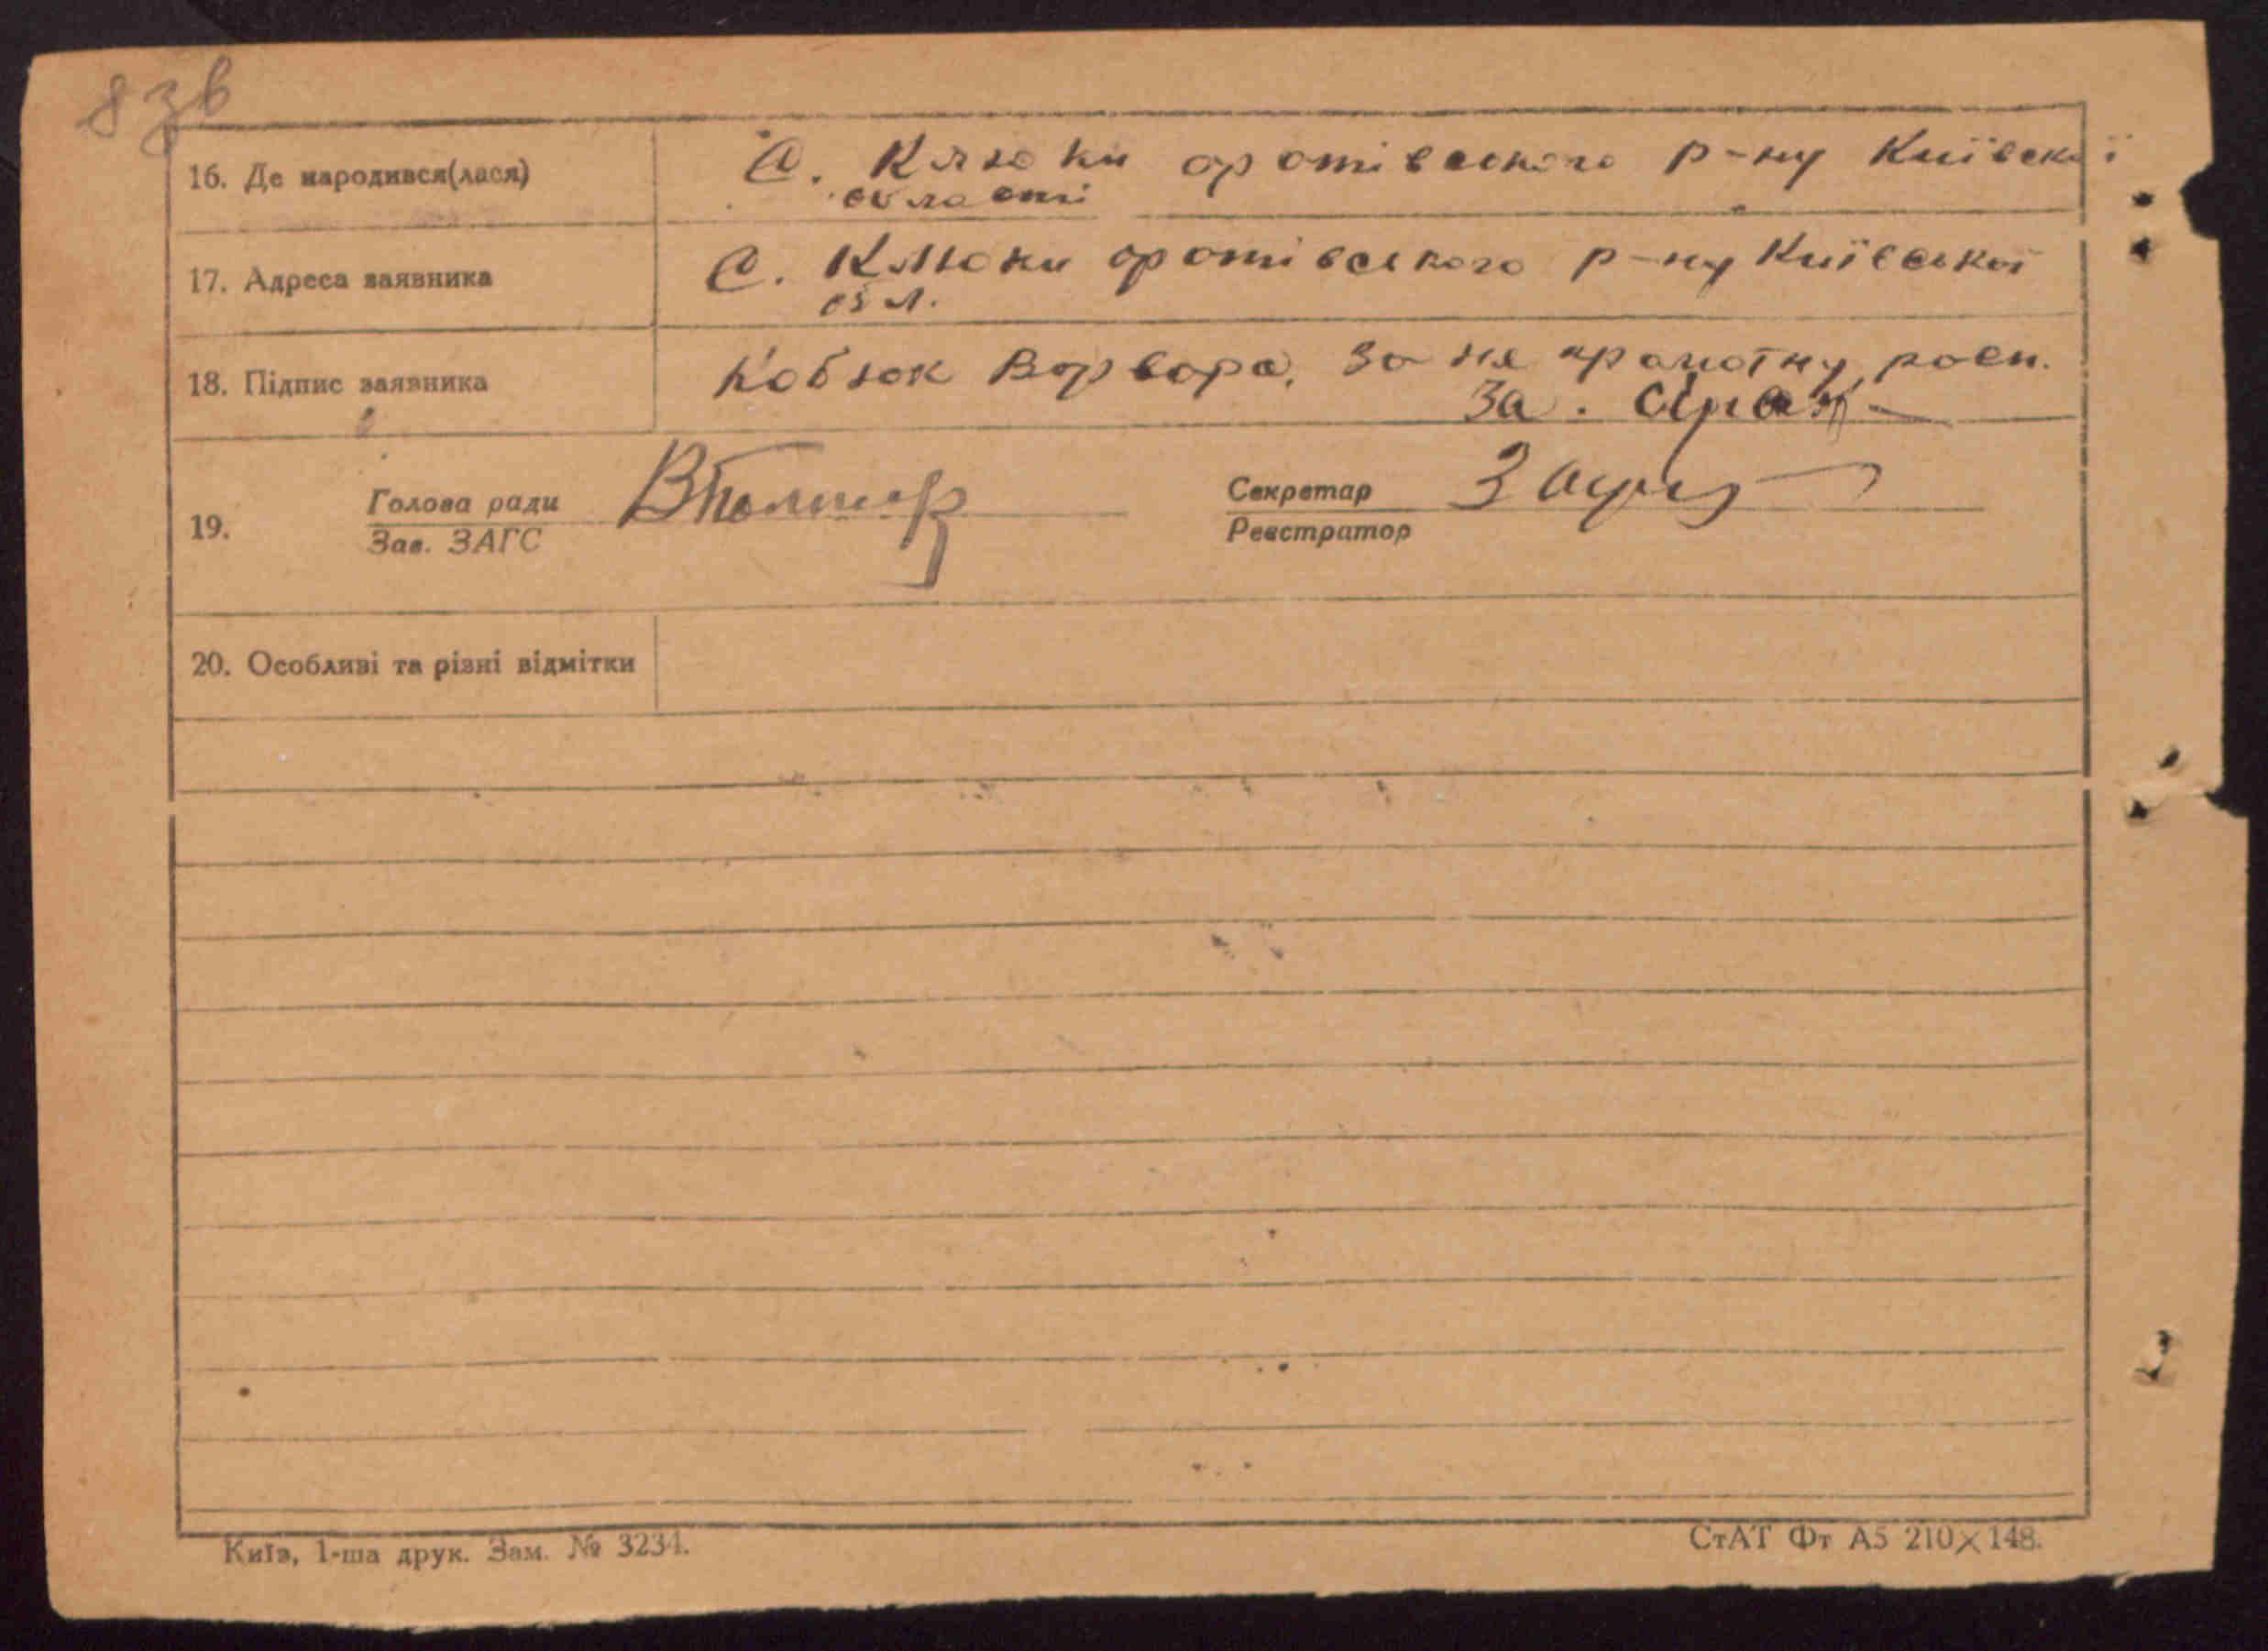 8 зв
16. Де народився(лася)
С. Клюки гротівського р-ну Київської
області
17. Адреса заявника
С. Клюки гротівського р-ну Київської
обл.
18. Підпис заявника
Кобзюк Ворвора, за не грамотну росп.
За.
19.
Голова ради
Зав. ЗАГС
Секретар
Реєстратор
20. Особливі та різні відмітки
Київ, 1-ша друк. Зам. № 3234.
СтАТ Фт А5 210×148.